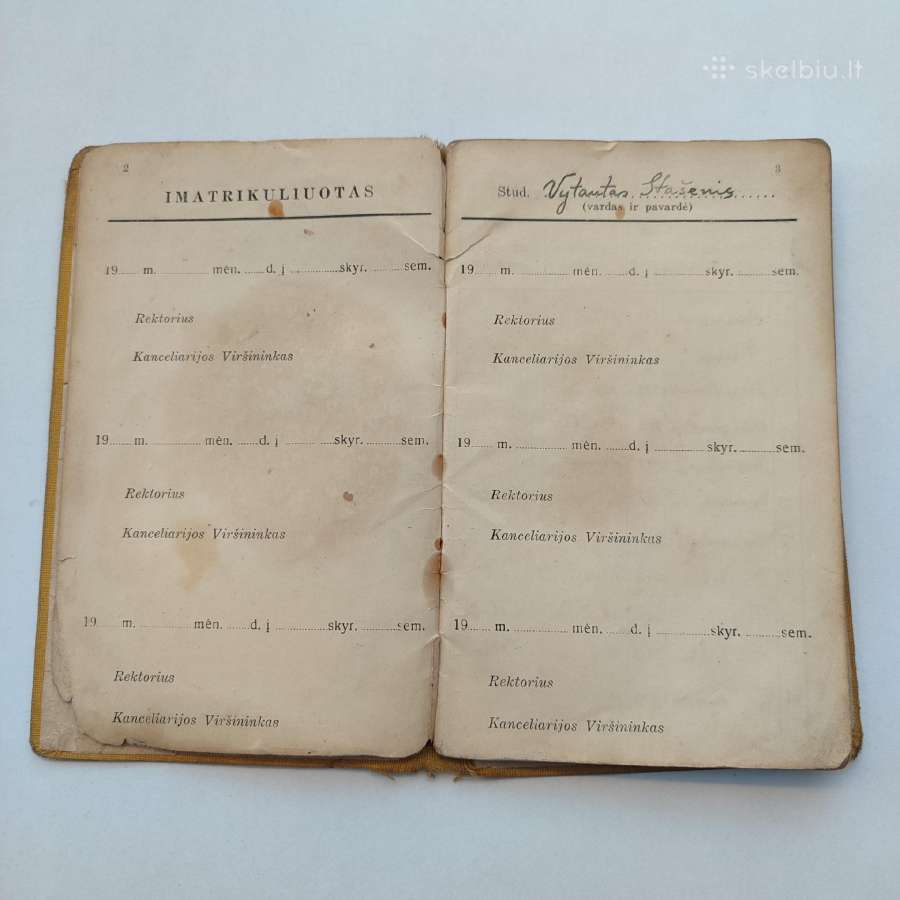 skelbiu.lt
2
IMATRIKULIUOTAS
19...... m. ............... mėn. ...... d. į ............... skyr. ......... sem.
Rektorius
Kanceliarijos Viršininkas
19...... m. ............... mėn. ...... d. į ............... skyr. ......... sem.
Rektorius
Kanceliarijos Viršininkas
19...... m. ............... mėn. ...... d. į ............... skyr. ......... sem.
Rektorius
Kanceliarijos Viršininkas
3
Stud. Vytautas Stašenis
(vardas ir pavardė)
19...... m. ............... mėn. ...... d. į ............... skyr. ......... sem.
Rektorius
Kanceliarijos Viršininkas
19...... m. ............... mėn. ...... d. į ............... skyr. ......... sem.
Rektorius
Kanceliarijos Viršininkas
19...... m. ............... mėn. ...... d. į ............... skyr. ......... sem.
Rektorius
Kanceliarijos Viršininkas